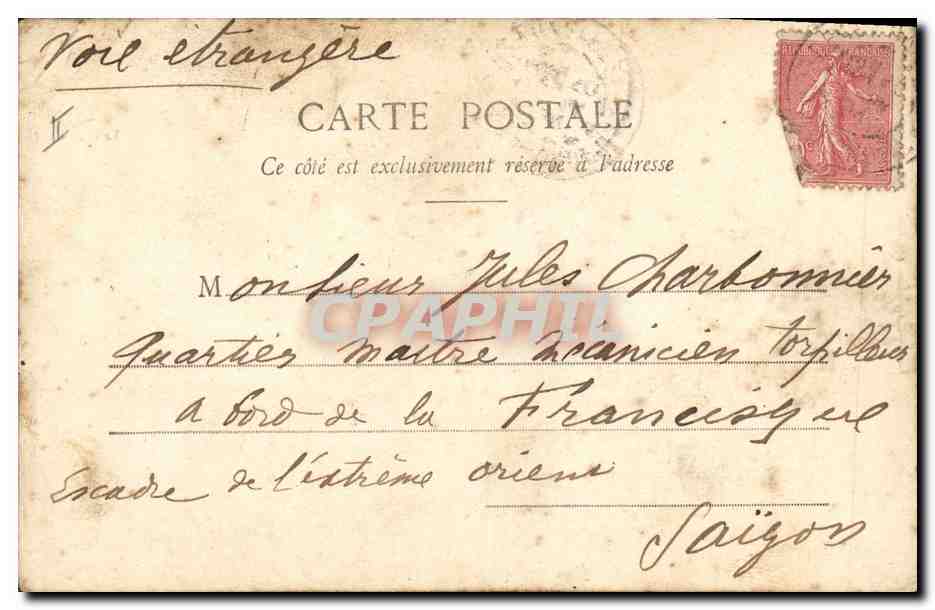 Voie étrangère
RÉPUBLIQUE FRANÇAISE
II
CARTE POSTALE
Ce côté est exclusivement réservé à l'adresse
Monsieur Jules Charbonnier
CPAPHIL
quartier maitre mécanicien torpilleur
a bord de la Francisque
Escadre de l'extrême orient
Saïgon